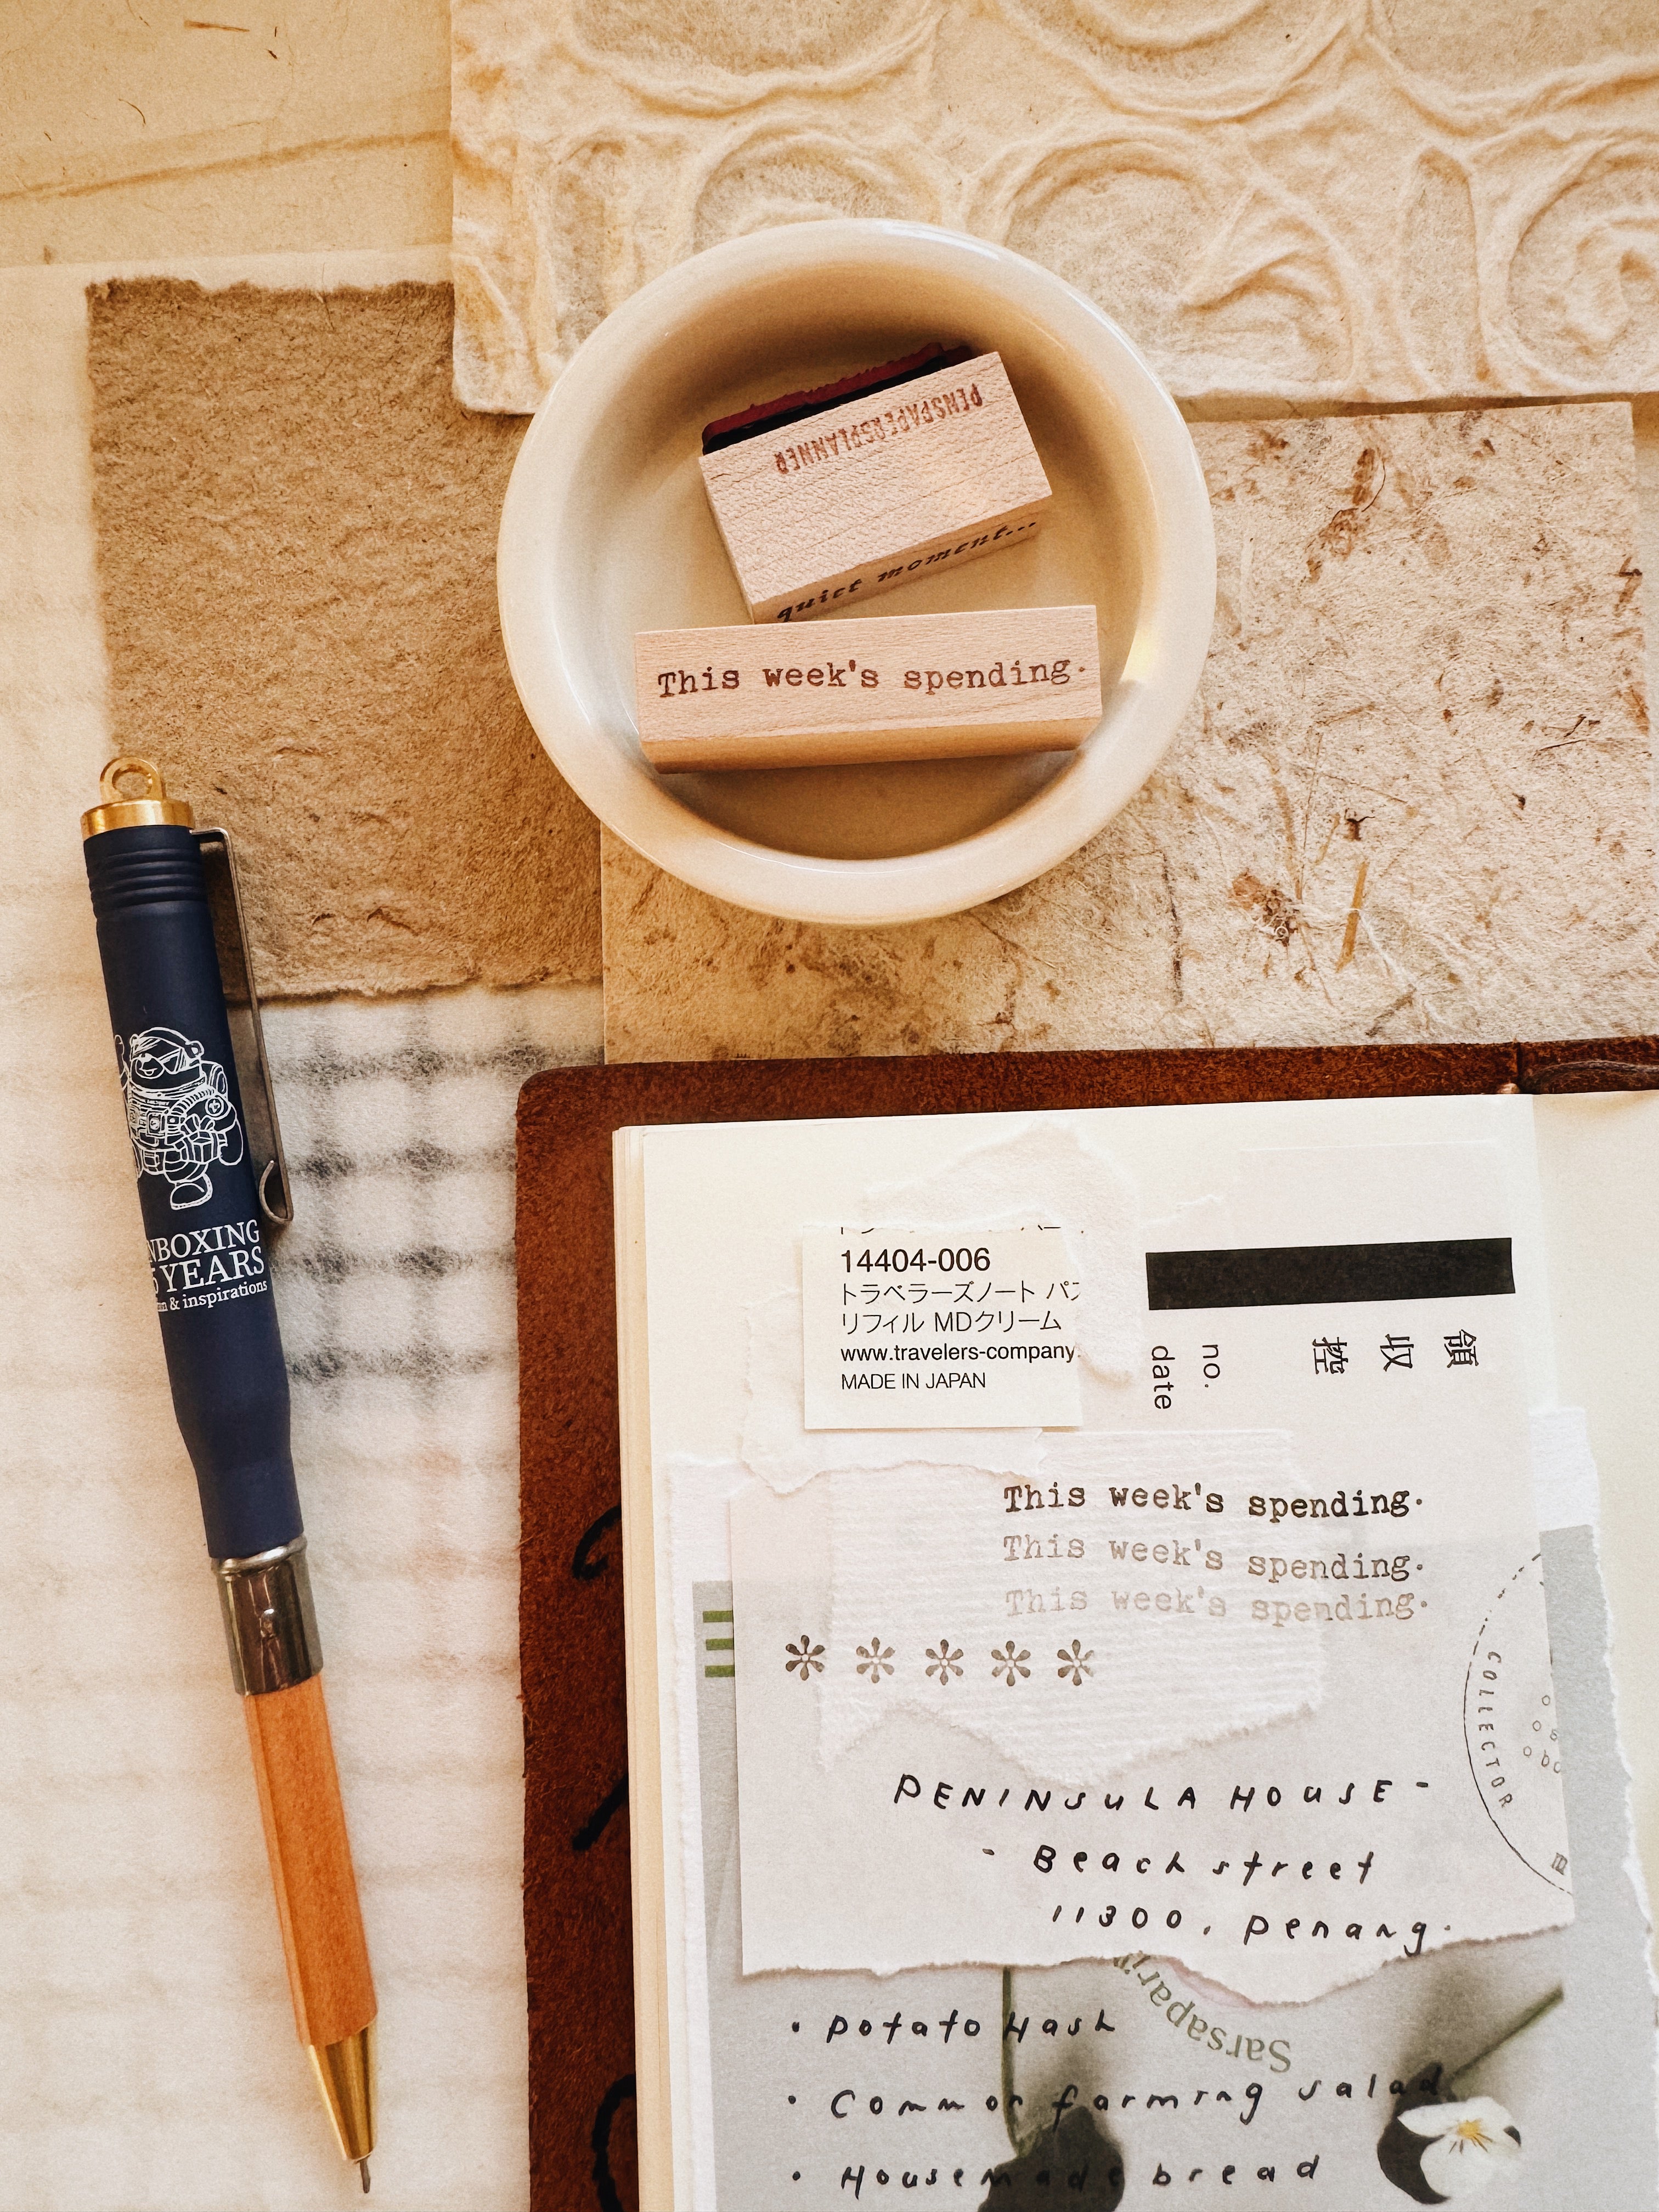 PENSPAPERSPLANNER
quiet moment...
This week's spending.
YEARS
& inspirations
14404-006
トラベラーズノート パ
リフィル MDクリーム
www.travelers-company.
MADE IN JAPAN
領収控
no.
date
This week's spending.
This week's spending.
This week's spending.
* * * * *
COLLECTOR
PENINSULA HOUSE -
- Beach street
11300, Penang.
Sarsapari
• Potato Hash
• Common farming salad
• Housemade bread